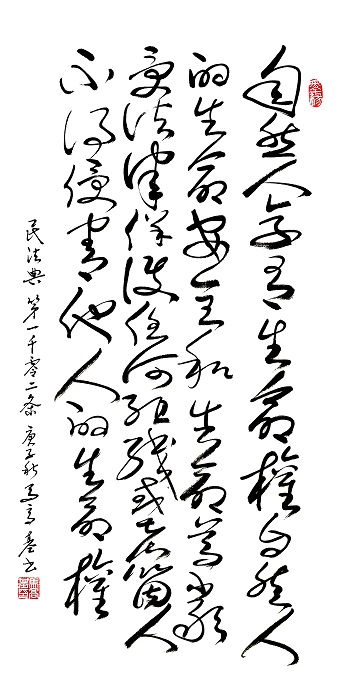 自然人享有生命權自然人
的生命安全和生命尊嚴
受法律保護任何組織或者箇人
不得侵害他人的生命權
民法典第一千零二条 庚子秋